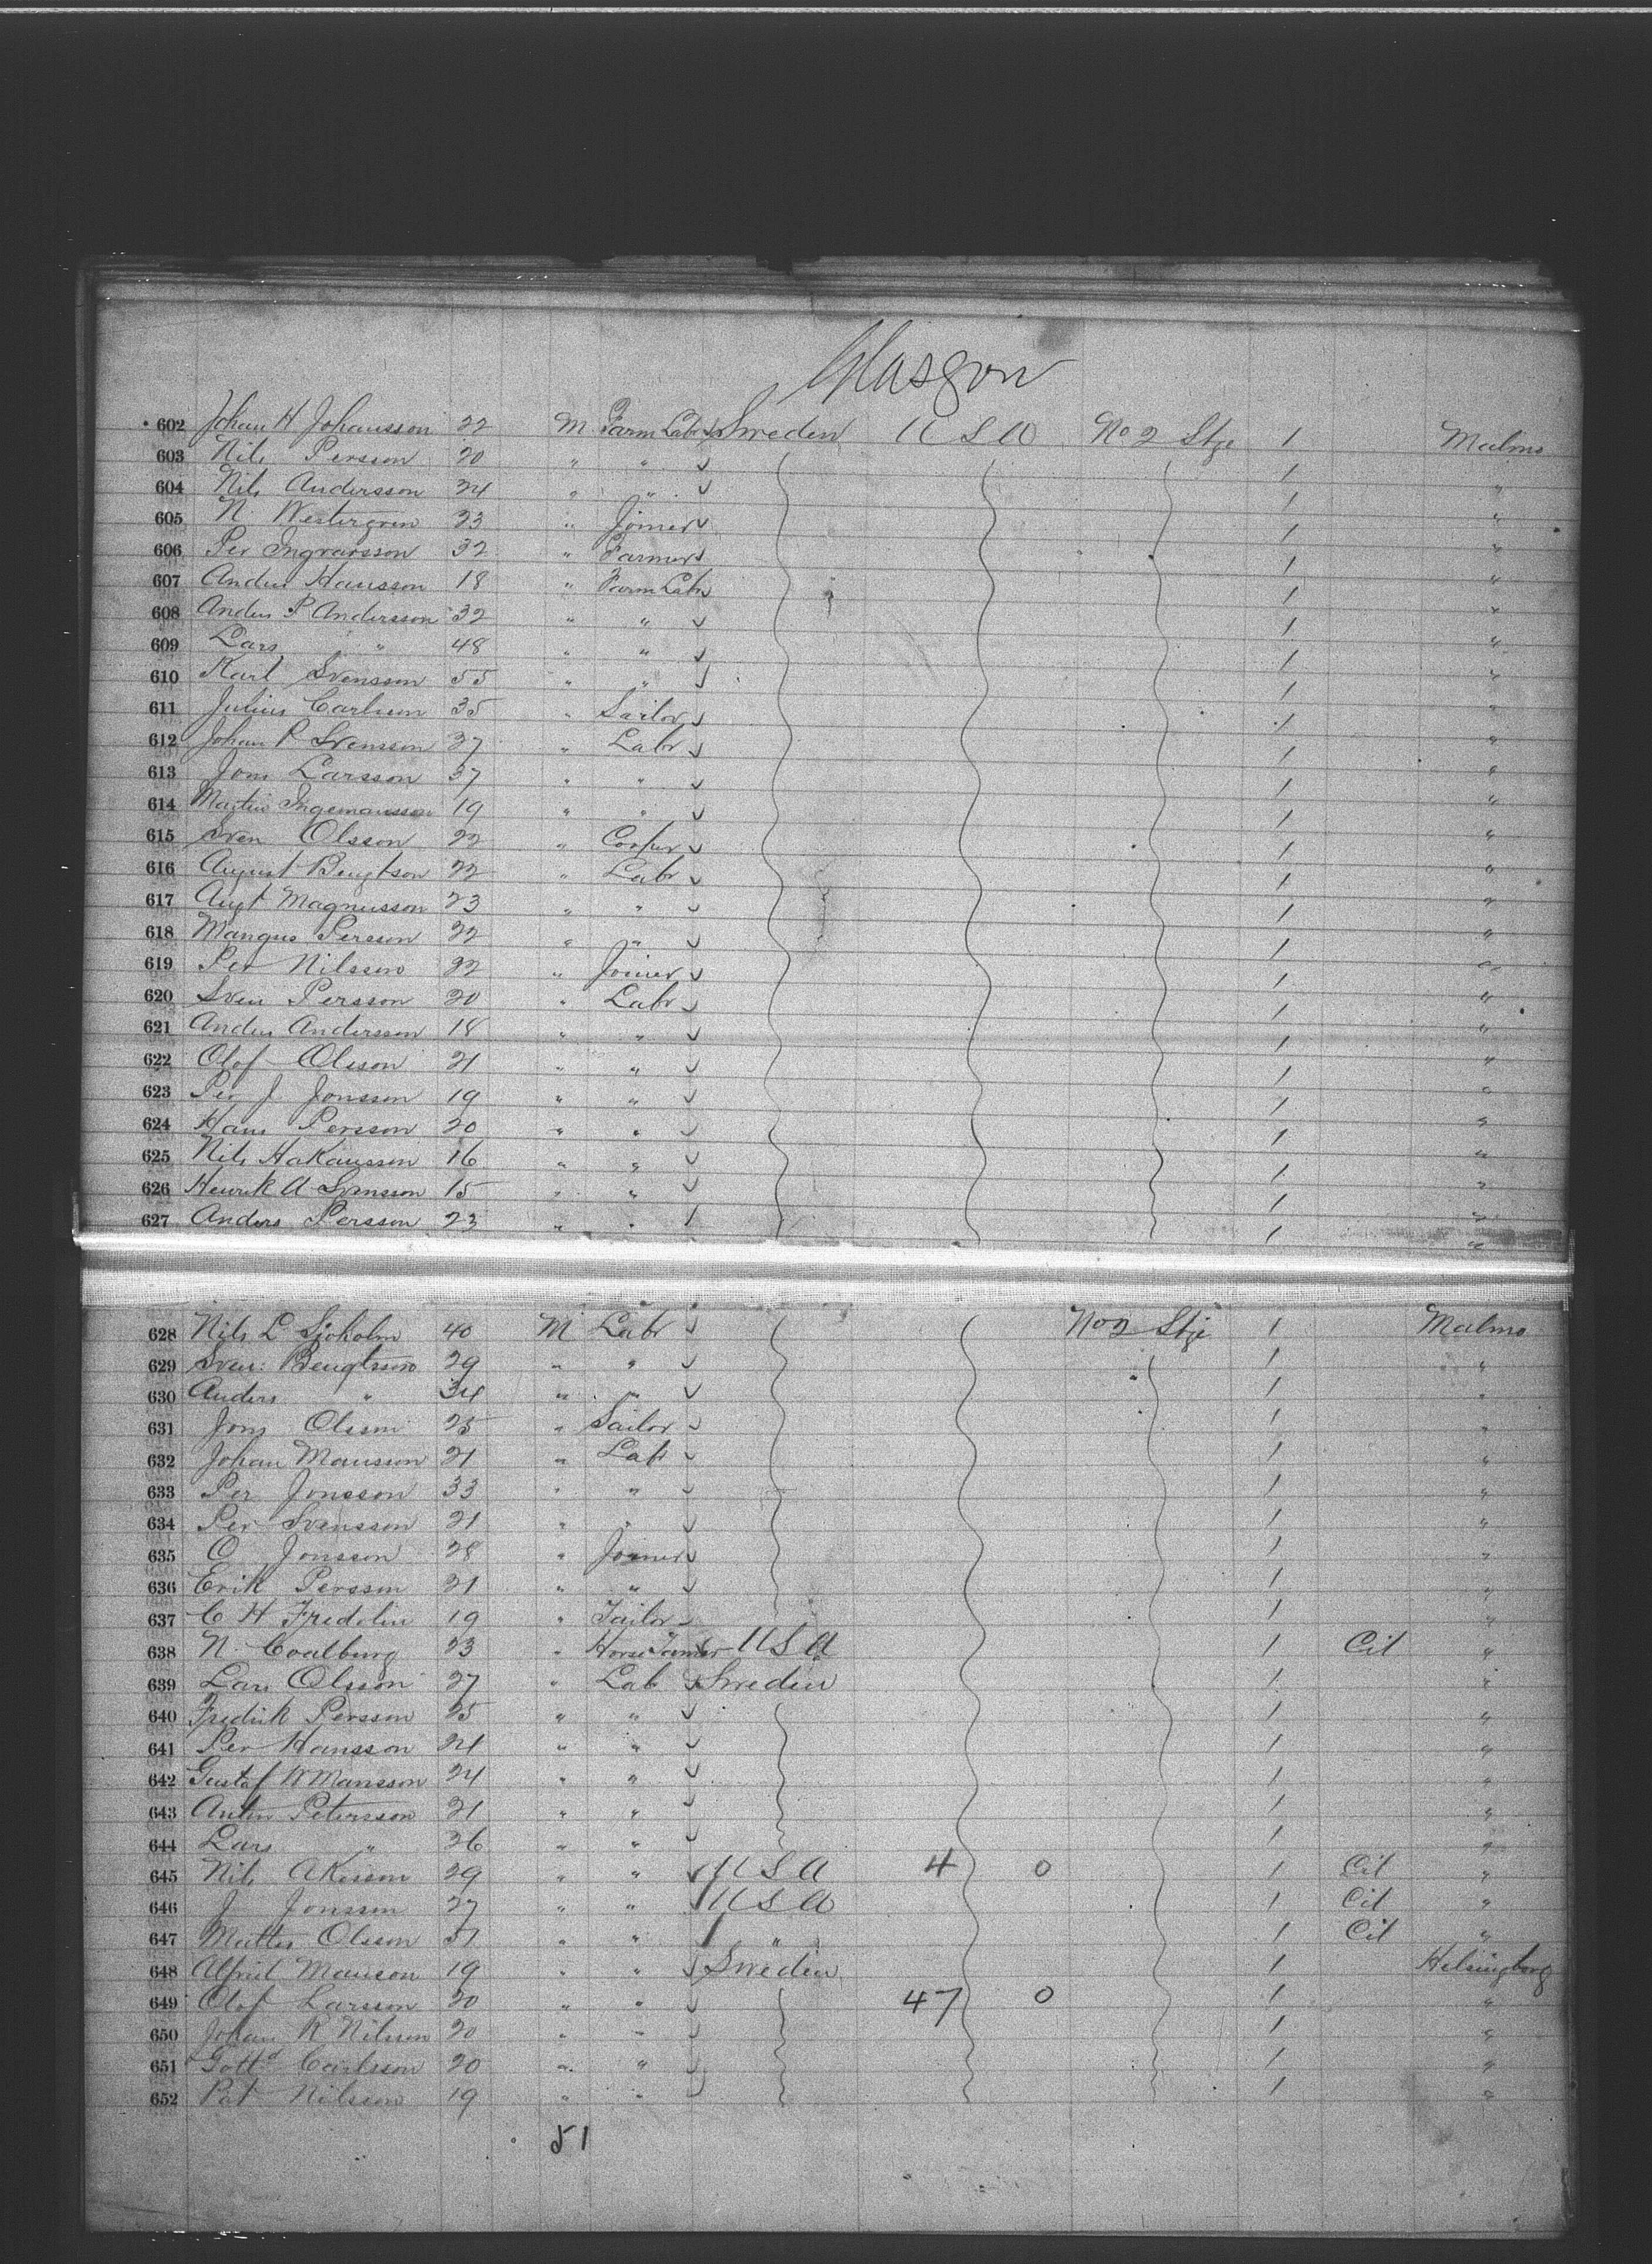 Glasgow
602 Johan H Johansson 22 M Farm Labr Sweden U S A No 2 Stge 1 Malmo
603 Nils Persson 20 " " 1 "
604 Nils Andersson 24 " " 1 "
605 N. Westergren 23 " Joiner 1 "
606 Per Ingvarsson 32 " Farmer 1 "
607 Anders Hansson 18 " Farm Labr 1 "
608 Anders P Andersson 32 " " 1 "
609 Lars " 48 " " 1 "
610 Karl Svensson 55 " " 1 "
611 Julius Carlson 35 " Sailor 1 "
612 Johan P Svensson 37 " Labr 1 "
613 Jons Larsson 37 " " 1 "
614 Martin Ingemansson 19 " " 1 "
615 Sven Olsson 22 " Cooper 1 "
616 August Bengtson 22 " Labr 1 "
617 Augt Magnusson 23 " " 1 "
618 Mangus Persson 22 " " 1 "
619 Per Nilsson 22 " Joiner 1 "
620 Sven Persson 20 " Labr 1 "
621 Anders Andersson 18 " " 1 "
622 Olof Olsson 21 " " 1 "
623 Per J Jonsson 19 " " 1 "
624 Hans Persson 20 " " 1 "
625 Nils Hakansson 16 " " 1 "
626 Henrik A Svensson 15 " " 1 "
627 Anders Persson 23 " " 1 "
628 Nils L Sjoholm 40 M Labr No 2 Stge 1 Malmo
629 Sven Bengtsson 29 " " 1 "
630 Anders " 34 " " 1 "
631 Jons Olsson 25 " Sailor 1 "
632 Johan Mansson 21 " Labr 1 "
633 Per Jonsson 33 " " 1 "
634 Per Svensson 21 " " 1 "
635 O Jonsson 28 " Joiner 1 "
636 Erik Persson 21 " " 1 "
637 C H Fredolin 19 " Tailor 1 "
638 N. Coalburg 23 " Horse Tamer U S A 1 Cit "
639 Lars Olsson 27 " Lab Sweden 1 "
640 Fredrik Persson 25 " " 1 "
641 Per Hansson 21 " " 1 "
642 Gustaf W Mansson 24 " " 1 "
643 Anton Petersson 21 " " 1 "
644 Lars " 26 " " 1 "
645 Nils Akesson 29 " " U S A 4 0 1 Cit "
646 J Jonsson 27 " " U S A 1 Cit "
647 Mattes Olsson 51 " " " 1 Cit "
648 Alfrid Manson 19 " " Sweden 1 Helsingborg
649 Olof Larsson 20 " " 47 0 1 "
650 Johan R Nilsson 20 " " 1 "
651 Gottd Carlsson 20 " " 1 "
652 Pat Nilsson 19 " " 1 "
51